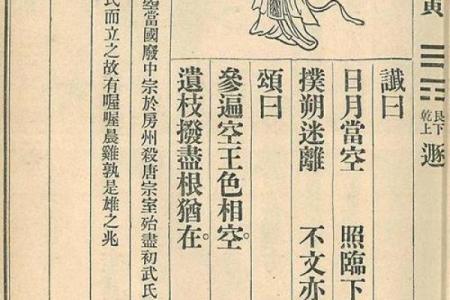 寅
艮下
乾上
遯
讖曰
日月當空 照臨下
撲朔迷離 不文亦
頌曰
參遍空王色相空。
遺枝撥盡根猶在。
空當國廢中宗於房州殺唐宗室殆盡初武氏
氏而立之故有喔喔晨雞孰是雄之兆